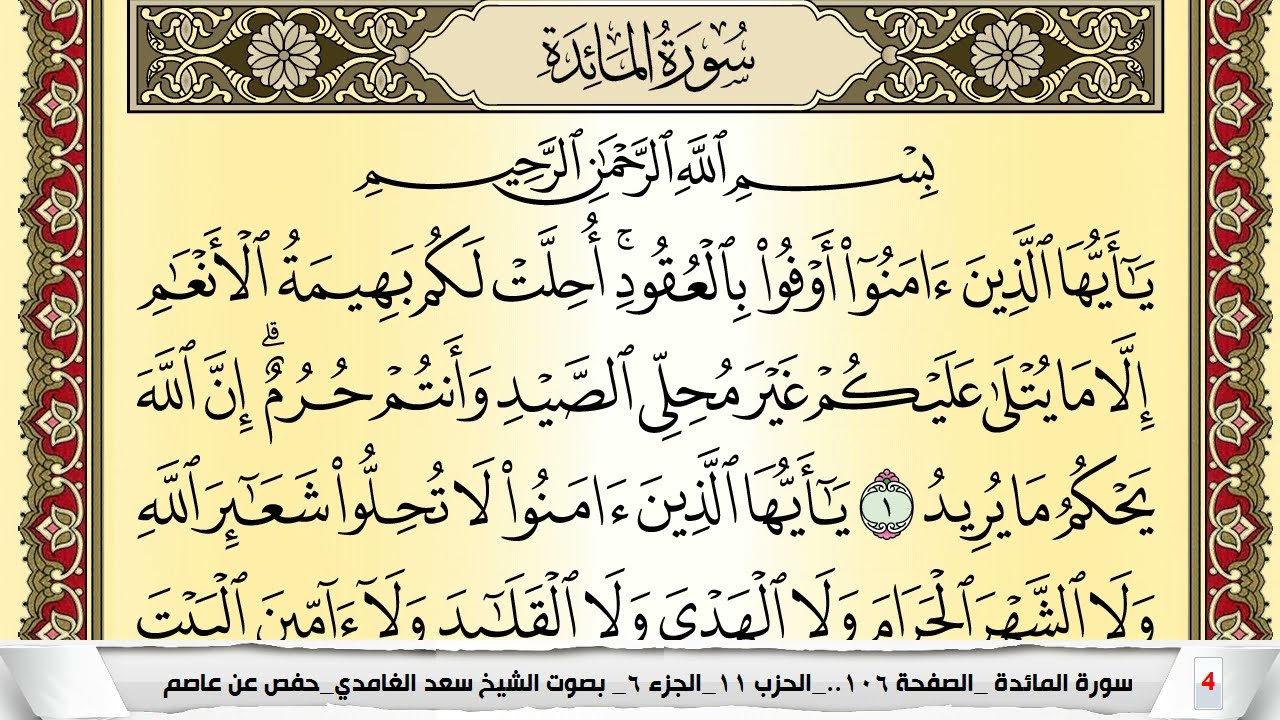 سُورَةُ المَائِدَةِ
بِسْمِ ٱللَّهِ ٱلرَّحْمَٰنِ ٱلرَّحِيمِ
يَٰٓأَيُّهَا ٱلَّذِينَ ءَامَنُوٓا۟ أَوْفُوا۟ بِٱلْعُقُودِ ۚ أُحِلَّتْ لَكُم بَهِيمَةُ ٱلْأَنْعَٰمِ
إِلَّا مَا يُتْلَىٰ عَلَيْكُمْ غَيْرَ مُحِلِّى ٱلصَّيْدِ وَأَنتُمْ حُرُمٌ ۗ إِنَّ ٱللَّهَ
يَحْكُمُ مَا يُرِيدُ ١ يَٰٓأَيُّهَا ٱلَّذِينَ ءَامَنُوا۟ لَا تُحِلُّوا۟ شَعَٰٓئِرَ ٱللَّهِ
وَلَا ٱلشَّهْرَ ٱلْحَرَامَ وَلَا ٱلْهَدْىَ وَلَا ٱلْقَلَٰٓئِدَ وَلَآ ءَآمِّينَ ٱلْبَيْتَ
سورة المائدة _الصفحة ١٠٦.._الحزب ١١_الجزء ٦_ بصوت الشيخ سعد الغامدي_حفص عن عاصم
4